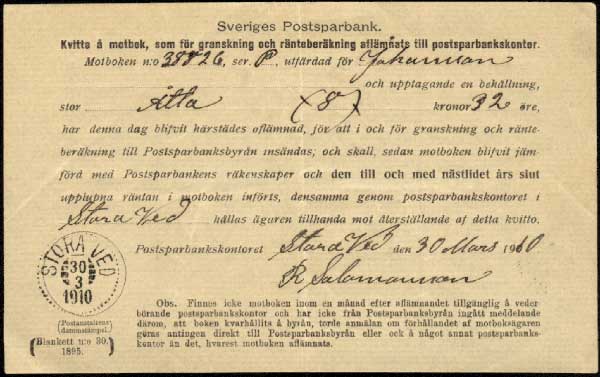 Sveriges Postsparbank.
Kvitto å motbok, som för granskning och ränteberäkning aflämnats till postsparbankskontor.
Motboken n:o 38826, ser. P, utfärdad för Johansson
och upptagande en behållning,
stor Åtta (8) kronor 32 öre,
har denna dag blifvit härstädes aflämnad, för att i och för granskning och ränte-
beräkning till Postsparbanksbyrån insändas, och skall, sedan motboken blifvit jäm-
förd med Postsparbankens räkenskaper och den till och med nästlidet års slut
upplupna räntan i motboken införts, densamma genom postsparbankskontoret i
Stora Ved hållas ägaren tillhanda mot återställande af detta kvitto.
Postsparbankskontoret Stora Ved den 30 Mars 1910
R Salomonsson
STORA VED
30
3
1910
(Postanstaltens datumstämpel.)
(Blankett n:o 30.
1895.)
Obs. Finnes icke motboken inom en månad efter aflämnandet tillgänglig å veder
börande postsparbankskontor och har icke från Postsparbanksbyrån ingått meddelande
därom, att boken kvarhållits å byrån, torde anmälan om förhållandet af motboksägaren
göras antingen direkt till Postsparbanksbyrån eller ock å något annat postsparbanks-
kontor än det, hvarest motboken aflämnats.